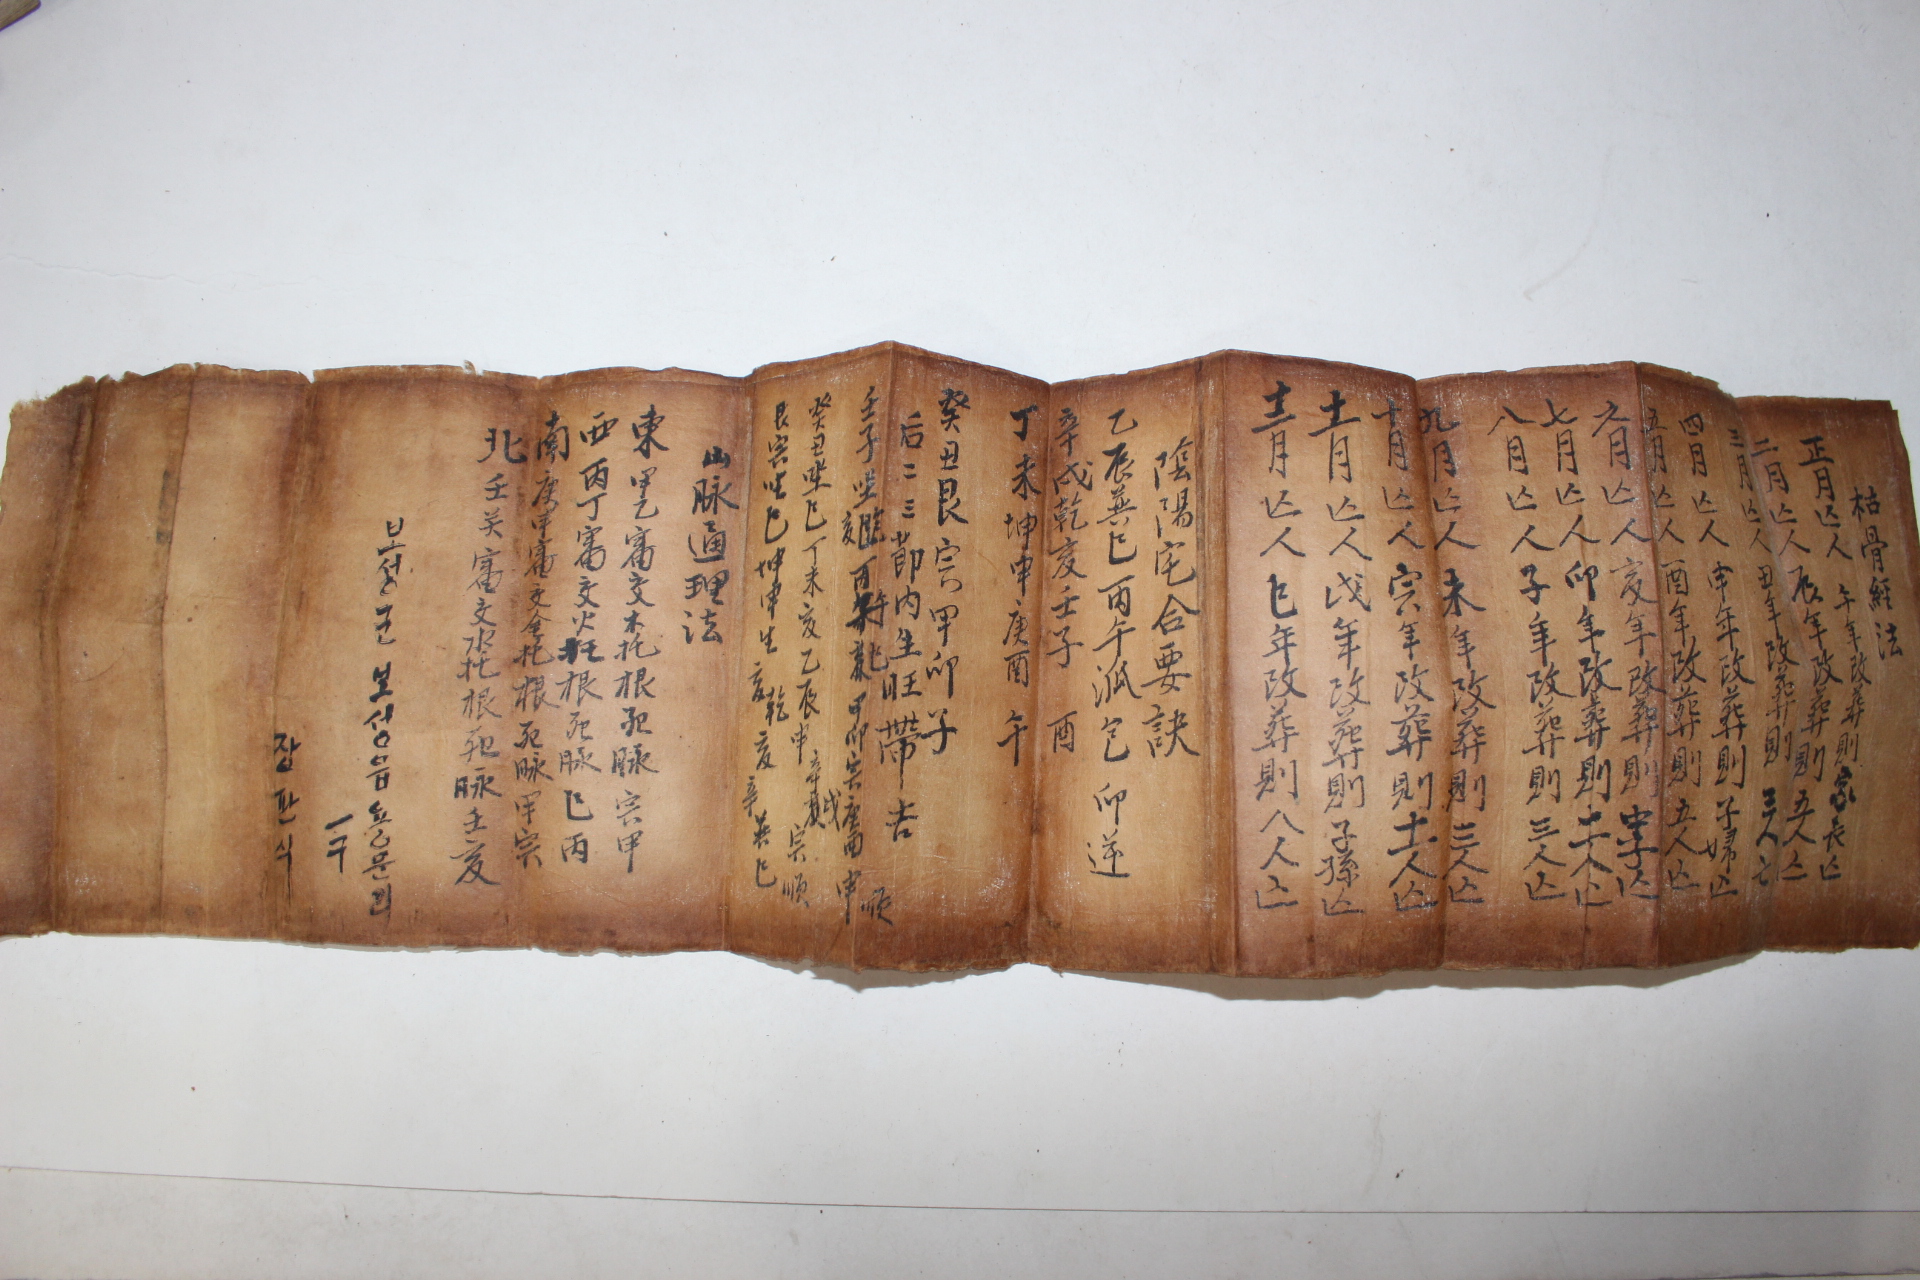 枯骨経法
正月亾人 午年改葬則家長亾
二月亾人 辰年改葬則五人亾
三月亾人 丑年改葬則三人亡
四月亾人 申年改葬則子婦亾
五月亾人 酉年改葬則五人亾
六月亾人 亥年改葬則 亾
七月亾人 卯年改葬則十二人亾
八月亾人 子年改葬則三人亾
九月亾人 未年改葬則三人亾
十月亾人 寅年改葬則十一人亾
十一月亾人 戌年改葬則子孫亾
十二月亾人 巳年改葬則八人亾
陰陽宅合要訣
乙辰巽巳丙午 卯逆
辛戌乾亥壬子 酉
丁未坤申庚酉 午
癸丑艮寅甲卯 子
后二三節內生旺帶吉
壬子坐 甲卯寅庚酉申順
癸丑坐巳丁未亥乙辰申辛戌 寅順
艮寅坐巳坤申生亥乾亥辛巽巳
山脉通理法
東 甲乙審交木托根死脉寅甲
西 丙丁審交火托根死脉巳丙
南 庚申審交金托根死脉甲寅
北 壬癸審交水托根死脉壬亥
보성군 보성읍 용문리
一구
잠판식